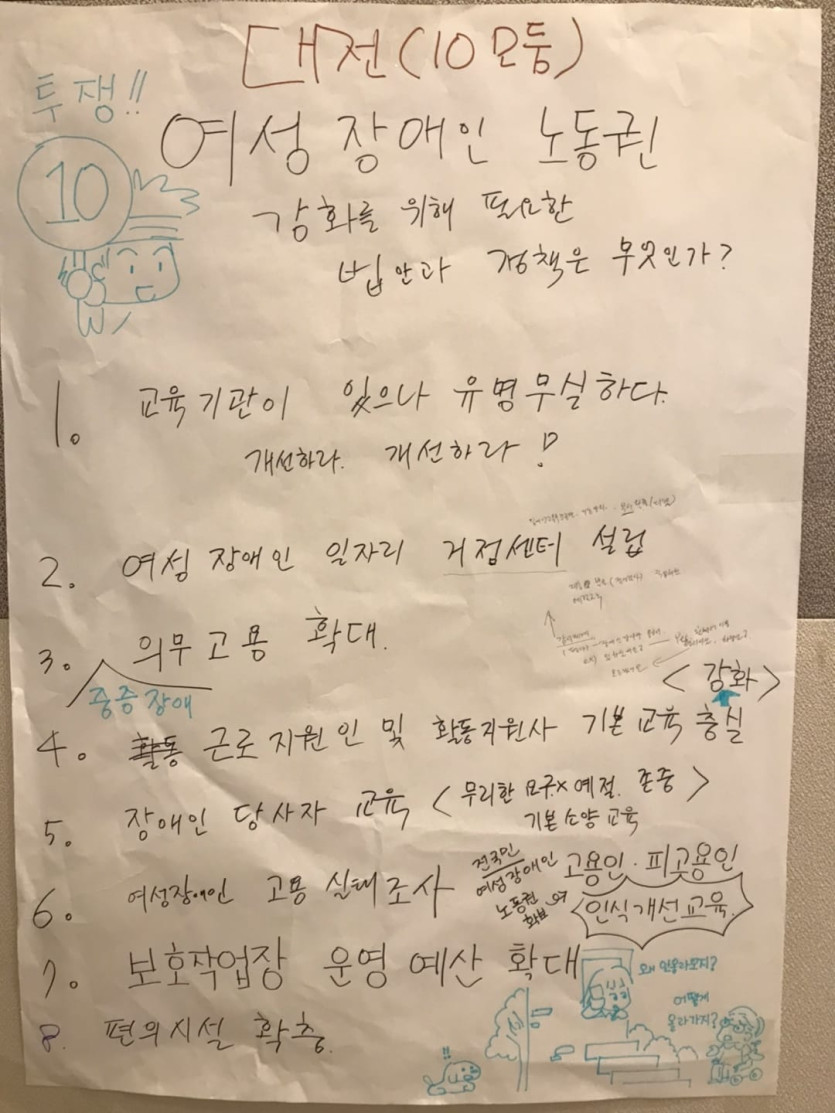 대전(10모둠)
투쟁!!
10
여성 장애인 노동권
강화를 위해 필요한
법안과 정책은 무엇인가?
1. 교육기관이 있으나 유명무실하다.
개선하라. 개선하라!
2. 여성 장애인 일자리 거점센터 설립
3. 의무고용 확대.
중증장애
<강화>
4. 활동 근로지원인 및 활동지원사 기본교육 충실
5. 장애인 당사자 교육 <무리한 요구x 예절. 존중>
기본소양교육
6. 여성장애인 고용 실태조사
전국민
여성장애인
노동권
확보
고용인·피고용인
인식개선교육.
7. 보호작업장 운영 예산 확대
왜 안올라오지?
어떻게
올라가지?
8. 편의시설 확충.
!!